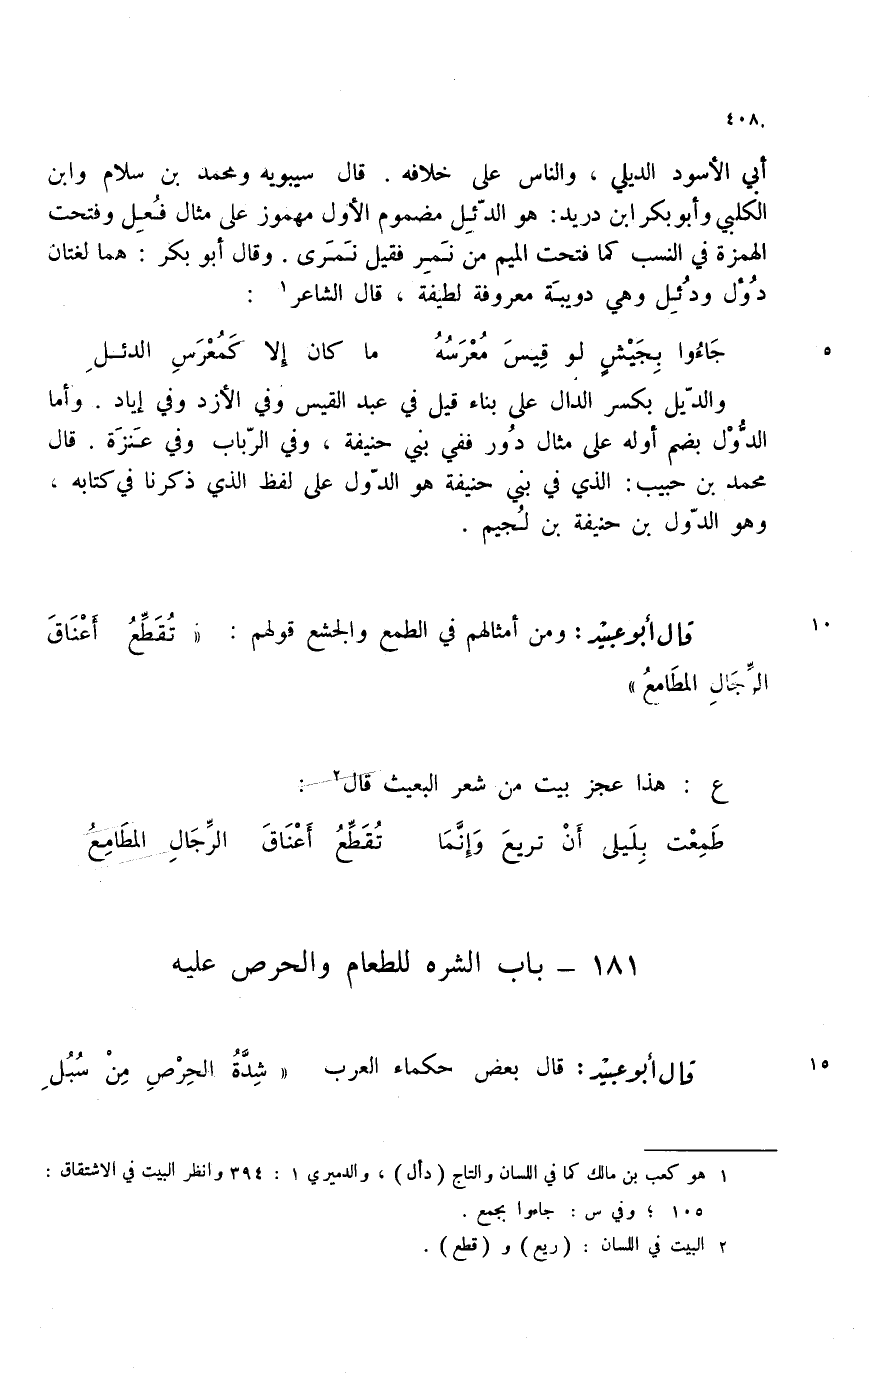 ٤٠٨
أبي الأسود الديلي ، والناس على خلافه . قال سيبويه ومحمد بن سلام وابن
الكلبي وأبو بكر ابن دريد : هو الدّئل مضموم الأول مهموز على مثال فُعل وفتحت
الهمزة في النسب كما فتحت الميم من نَمر فقيل نَمَرى . وقال أبو بكر : هما لغتان
دُوْل ودُئل وهي دويبّة معروفة لطيفة ، قال الشاعر١ :
٥ جَاءُوا بِجَيْشٍ لو قِيسَ مُعْرَسُهُ ما كان إلا كَمُعْرَسِ الدئلِ
والدّيل بكسر الدال على بناء قيل في عبد القيس وفي الأزد وفي إياد . وأما
الدُّوْل بضم أوله على مثال دُور ففي بني حنيفة ، وفي الرّباب وفي عنَزَة . قال
محمد بن حبيب : الذي في بني حنيفة هو الدّول على لفظ الذي ذكرنا في كتابه ،
وهو الدّول بن حنيفة بن لُجيم .
١٠ قال أبو عبيْد : ومن أمثالهم في الطمع والجشع قولهم : « تُقَطِّعُ أَعْنَاقَ
الرِّجَالِ المطَامعُ »
ع : هذا عجز بيت من شعر البعيث قال٢ :
طَمِعْت بِلَيلى أَنْ تريعَ وَإنَّمَا تُقَطِّعُ أَعْنَاقَ الرِّجَالِ المطَامِعُ
١٨١ – باب الشره للطعام والحرص عليه
١٥ قال أبو عبيْد : قال بعض حكماء العرب « شِدَّةُ الحِرْصِ مِنْ سُبُلِ
١ هو كعب بن مالك كما في اللسان والتاج ( دأل ) ، والدميري ١ : ٣٩٤ وانظر البيت في الاشتقاق :
١٠٥ ؛ وفي س : جاءوا بجمع .
٢ البيت في اللسان : ( ريع ) و ( قطع ) .